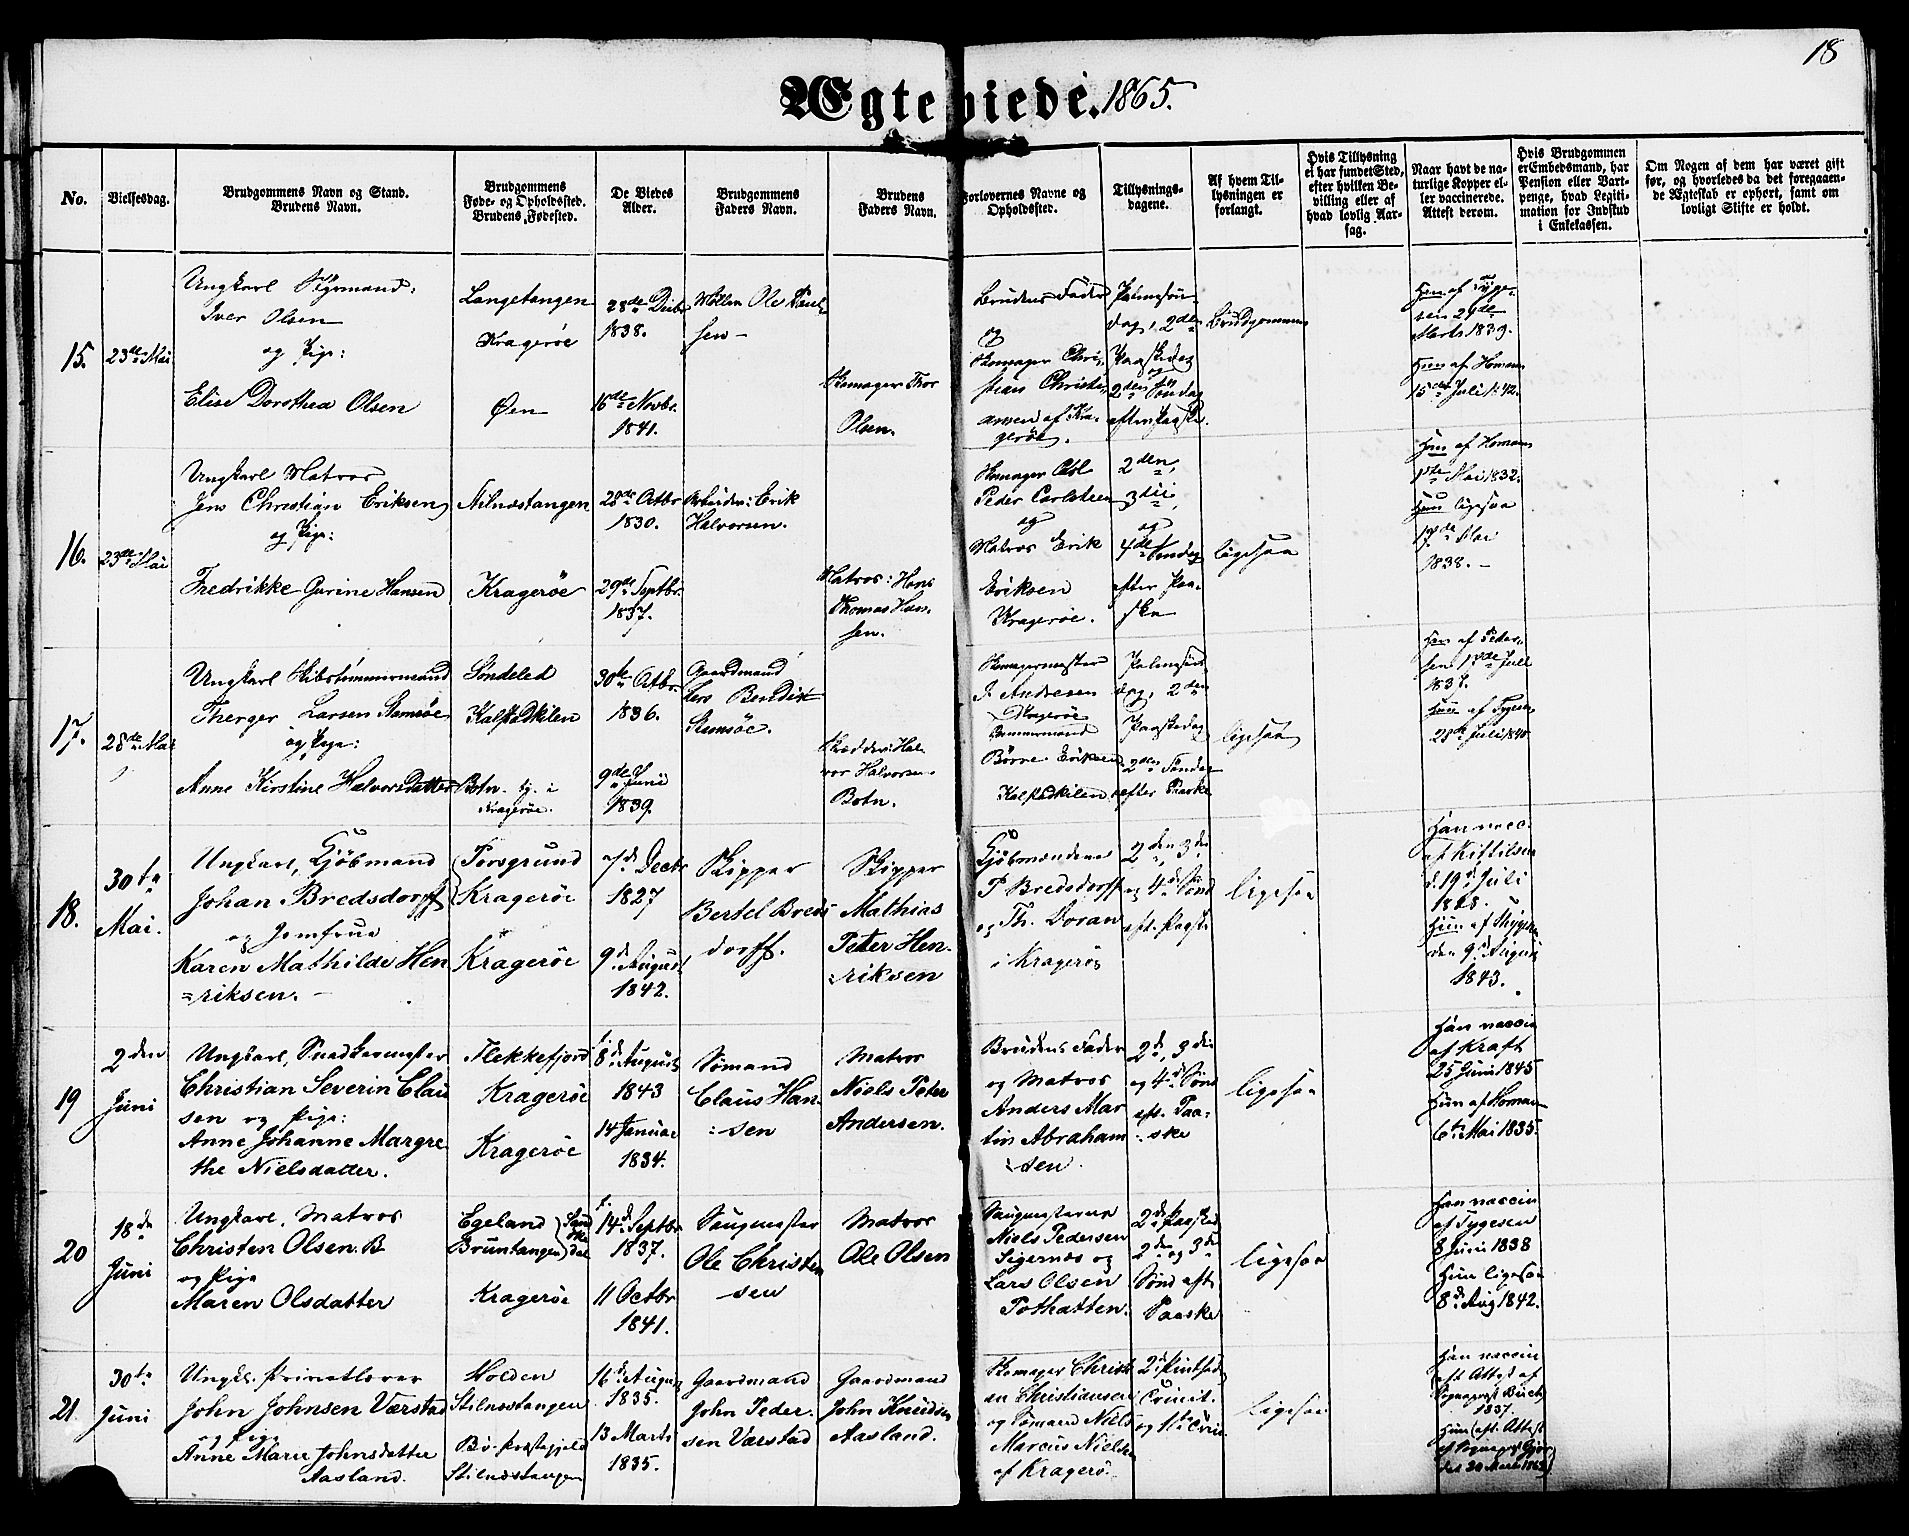 18
Ægteviede. 1865.
No.
Vielsesdag.
Brudgommens Navn og Stand.
Brudens Navn.
Brudgommens
Føde- og Opholdssted.
Brudens Fødested.
De Viedes
Alder.
Brudgommens
Faders Navn.
Brudens
Faders Navn.
Forlovernes Navne og
Opholdssted.
Tillysnings-
dagene.
Af hvem Til-
lysningen er
forlangt.
Hvis Tillysning
ei har fundet Sted,
efter hvilken Be-
villing eller af
hvad lovlig Aar-
sag.
Naar havt de na-
turlige Kopper el-
ler vaccinerede.
Attest derom.
Hvis Brudgommen
er Embedsmand, har
Pension eller Vart-
penge, hvad Legiti-
mation for Indskud
i Enkekassen.
Om Nogen af dem har været gift
før, og hvorledes da det foregaaen-
de Ægteskab er ophørt, samt om
lovligt Skifte er holdt.
15.
23de Mai
Ungkarl
Iver Olsen
og Pige:
Elise Dorothea Olsen
Langetangen
Kragerøe
Øen
28de Decbr
1838.
16de Novbr.
1841.
Ole
sen
Skomager Thor
Olsen.
Brudens Fader
og
Skomager Chri-
stian Christi-
ansen af Kra-
gerøe.
Palmesøn-
dag, 2den
Paaskedag
og
2den Søndag
efter Paaske.
Brudgommen
Han af Tyge-
sen 29de
Marts 1839.
Hun af Homan
15de Juli 1842.
16.
23de Mai
Ungkarl Matros
Jens Christian Eriksen
og Pige:
Fredrikke Gurine Hansen
Stilnæstangen
Kragerøe
28de Octbr
1830.
29de Septbr.
1837.
Arbeider: Erik
Halvorsen.
Matros: Hans
Thomas Han-
sen.
Skomager
Peder Carlsteen
og
Matros Erik
Eriksen
Kragerøe.
2den,
3die,
og
4de Søndag
efter Paa-
ske
ligesaa
Han af Homan
1832.
Hun ligesaa
17de Mai
1838.
17.
28de Mai
Ungkarl Skibstømmermand
Therger Larsen Stamsøe
og Pige:
Anne Kirstine Halvorsdatter
Søndeled
Kalstadkilen
Botn. tj. i
Kragerøe.
30te Octbr.
1836.
9de Juni
1839.
Gaardmand
Lars Bendix
Stamsøe.
Skrædder: Hal-
vor Halvorsen
Botn.
Skomagermester
J. Andresen
Kragerøe
Tømmermand
Børre Eriksen
Kalstadkilen.
Palmesøn-
dag, 2den
Paaskedag
2den Søndag
efter Paaske
ligesaa
Han af Peder-
sen 17de Juli
1837.
Hun af Tygesen
28de Juli 1840
18.
30te
Mai.
Ungkarl, Kjøbmand
Johan Bredsdorff
og Jomfrue
Karen Mathilde Hen
=riksen.
Porsgrund
Kragerøe
Kragerøe
7d Decbr
1827
9d August
1842.
Skipper
Bertel Breds
dorff.
Skipper
Mathias
Peter Hen-
riksen
Kjøbmændene
P Bredsdorff
og Th. Doran
i Kragerøe
2den, 3die
og 4de Sønd
eft. Paask.
ligesaa
Han vacc.
af Kittilsen
d. 19d Juli
1828.
Hun af
den 9d August
1843.
19
2den
Juni
Ungkarl, Snedkermester
Christian Severin Clau
sen og Pige:
Anne Johanne Margre
the Nielsdatter.
Flekkefjord
Kragerøe
Kragerøe
f. 8d August
1843
14 Januar
1834.
Sømand
Claus Han-
:sen
Matros
Niels Peter
Andersen.
Brudens Fader
og Matros
Anders Mar
tin Abraham
sen.
2d, 3die
og 4d Sønd
eft. Paa-
ske
ligesaa
Han vaccin
af Kraft
25 Juni 1845
Hun af Homan
6te Mai 1835.
20
18de
Juni
Ungkarl, Matros
Christen Olsen. B
og Pige
Maren Olsdatter
Egeland
Bruntangen
Kragerøe
f. 14d Septbr
1837.
11 Octbr
1841.
Saugmester
Ole Christen
sen
Matros
Ole Olsen
Saugmesterne
Niels Pedersen
og
Lars Olsen
Pothatten.
2d Paasked
2de og 3de
Sønd eft.
Paaske
ligesaa
Han vaccin
af Tygesen
8 Juni 1838
Hun ligesaa
8d Aug 1842.
21.
30te
Juni
Ungk. Privatlærer
John Johnsen Værstad
og Pige
Anne Marie Johnsdatter
Aasland.
Holden
Stilnæstangen
Bø Præstegjeld
Stilnæstangen
16d August
1835.
13 Marts
1835.
Gaardmand
John Peder-
sen Værstad
Gaardmand
John Knudsen
Aasland.
Skomager Christi
an Christiansen
og Sømand Niels
Marcus Nielsen
af Kragerø.
2d Pintsed
Trinit.
og 1ste Trin
ligesaa
Han vaccin
eft. Attest af
Sogneprest Buch
1837.
Hun eft. Attest
af